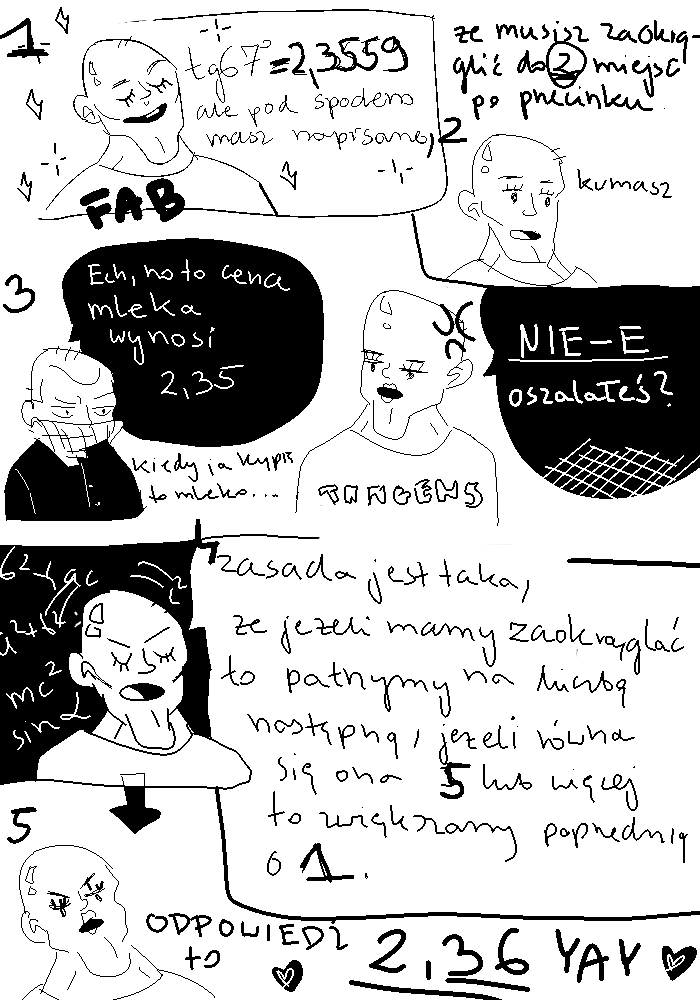 1
tg67°=2,3559
ale pod spodem
masz napisane,
FAB
2
że musisz zaokrą-
glić do 2 miejsc
po przecinku
kumasz
3
Ech, no to cena
mleka
wynosi
2,35
kiedy ja kupię
to mleko...
NIE-E
oszalałeś?
TANGENS
4
zasada jest taka,
że jeżeli mamy zaokrąglać
to patrzymy na liczbę
następną, jeżeli równa
się ona 5 lub więcej
to zwiększamy poprzednią
o 1.
b²-4ac
a²+b²=
mc²
sinα
5
ODPOWIEDŹ
to
2,36 YAY